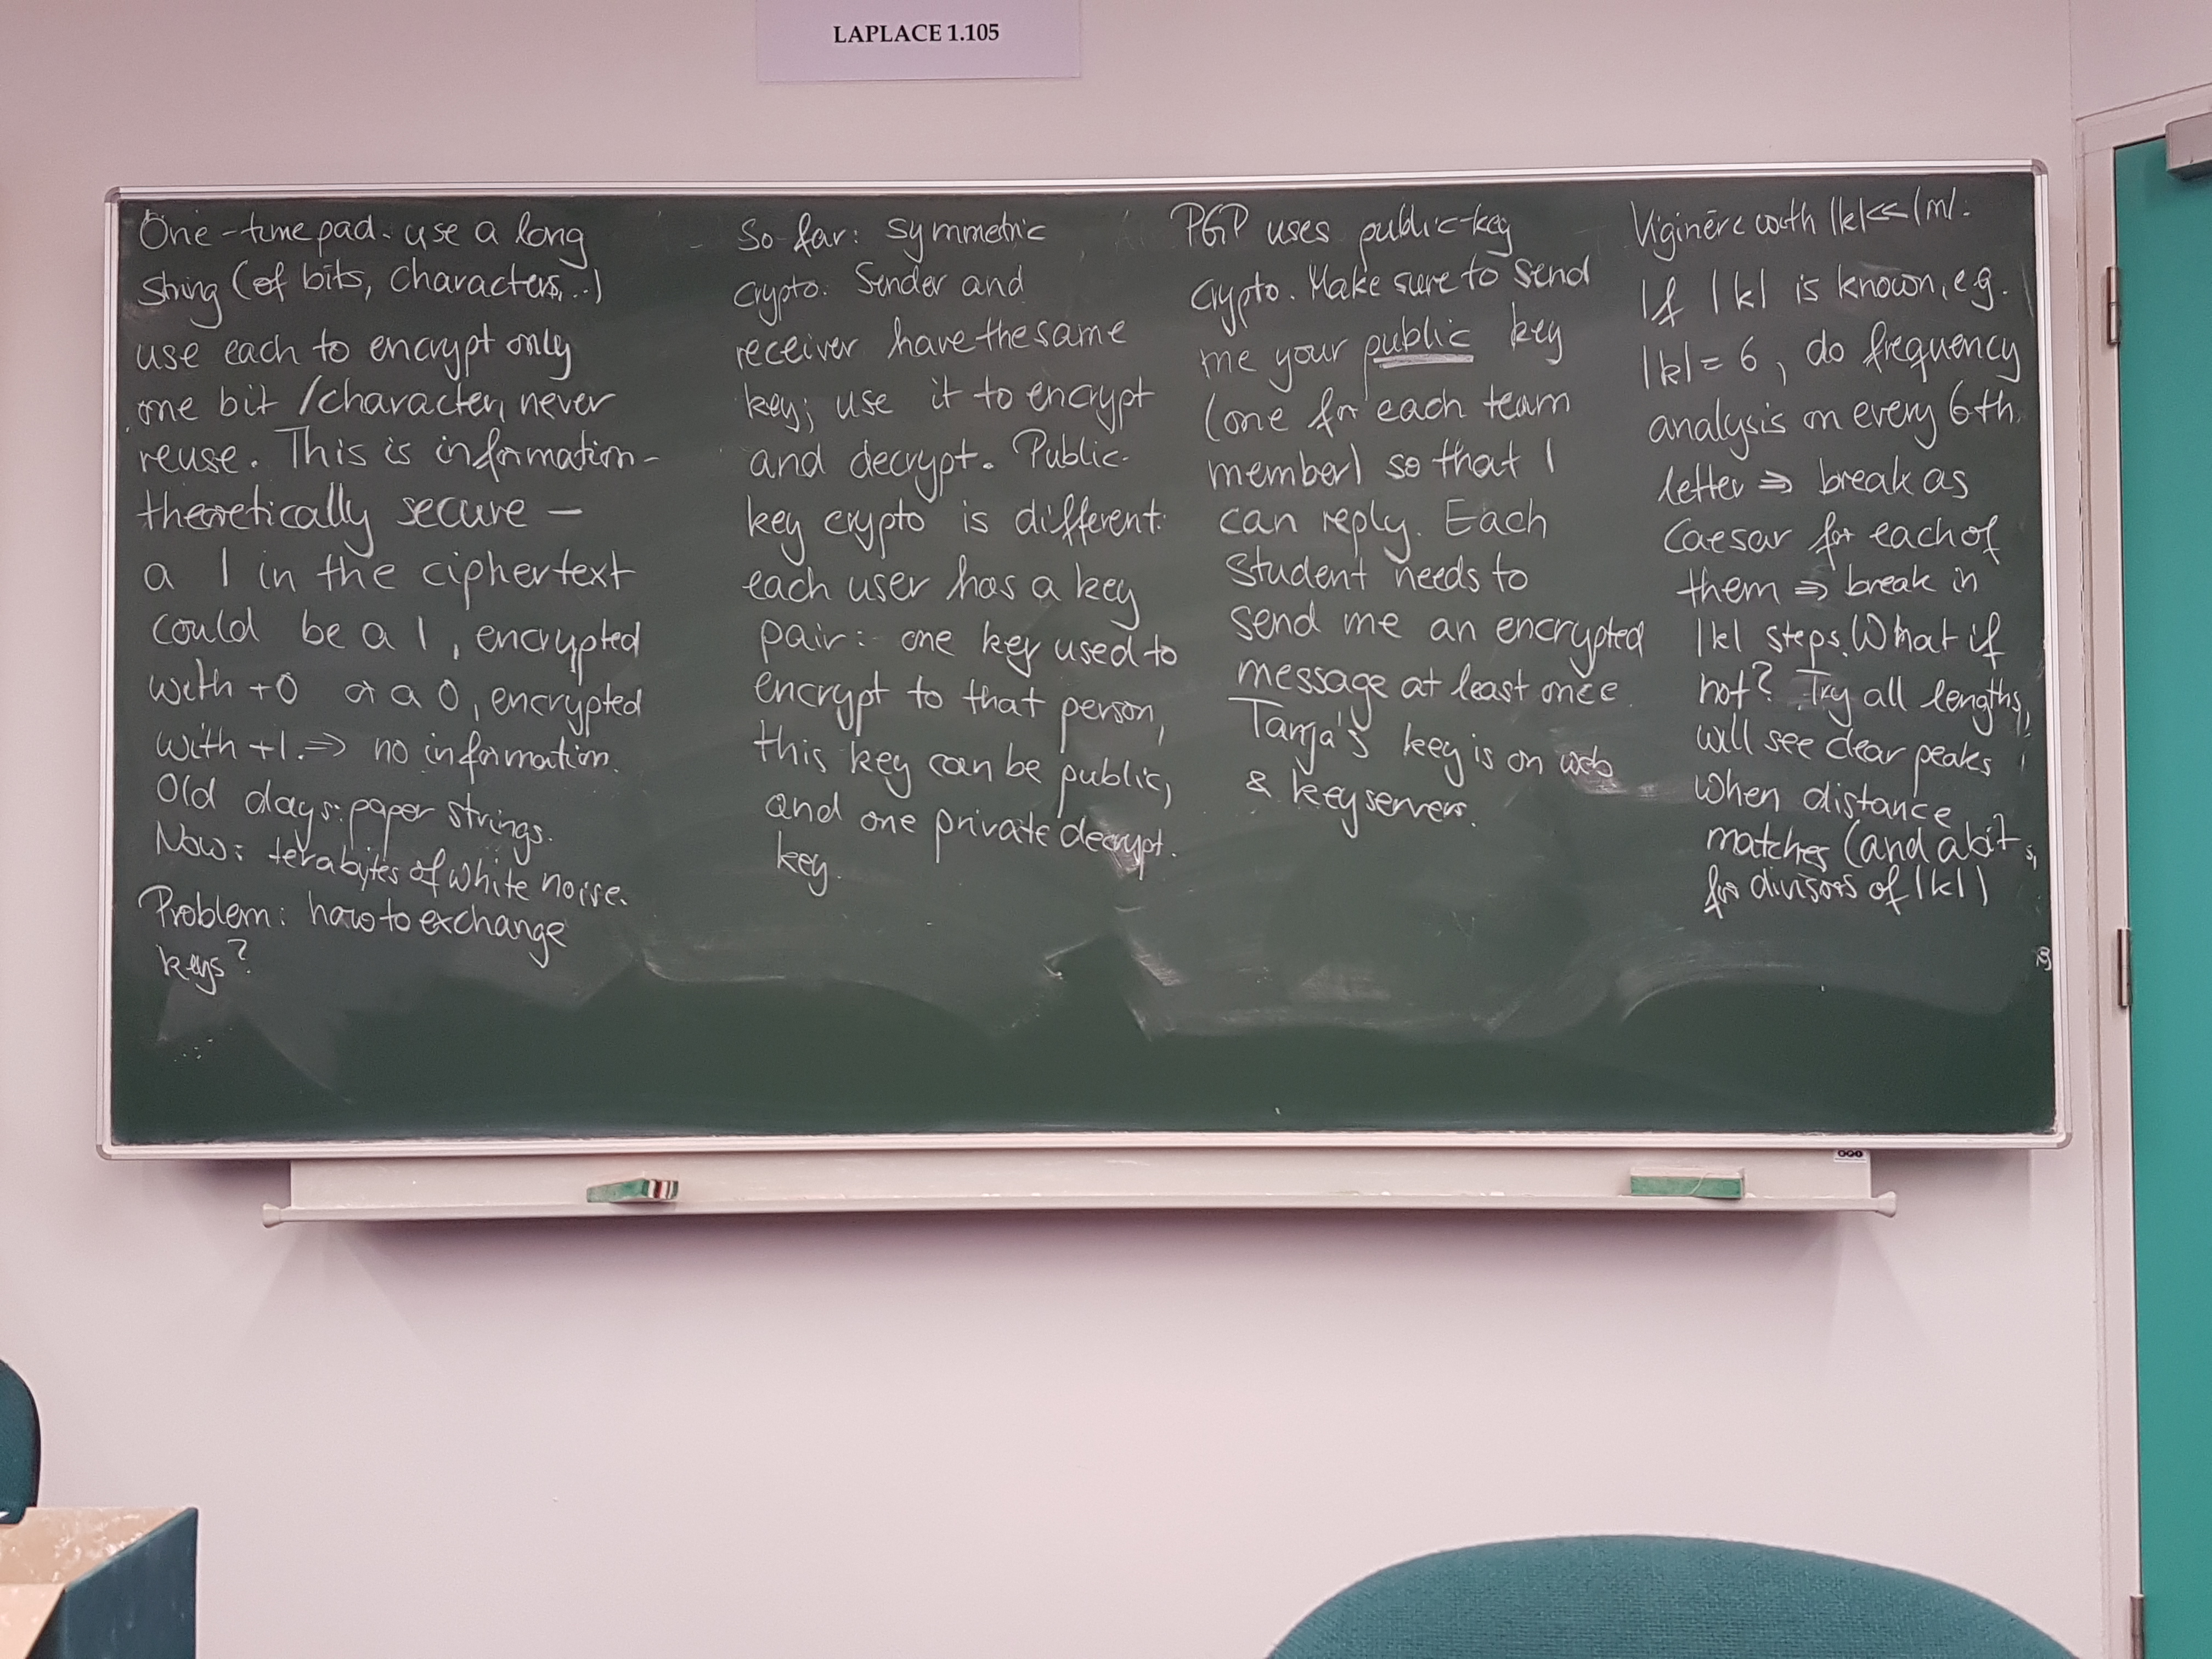 LAPLACE 1.105
One-time pad. use a long
string (of bits, characters,..)
use each to encrypt only
one bit /character, never
reuse. This is information-
theoretically secure –
a 1 in the ciphertext
could be a 1, encrypted
with +0 or a 0, encrypted
with +1. ⇒ no information.
Old days: paper strings.
Now: terabytes of white noise.
Problem: how to exchange
keys?
So far: symmetric
crypto. Sender and
receiver have the same
key; use it to encrypt
and decrypt. Public-
key crypto is different:
each user has a key
pair: one key used to
encrypt to that person,
this key can be public,
and one private decrypt.
key.
PGP uses public-key
crypto. Make sure to send
me your public key
(one for each team
member) so that I
can reply. Each
student needs to
send me an encrypted
message at least once.
Tanja's key is on web
& keyservers.
Viginère with |k|<<|m|.
If |k| is known, e.g.
|k|= 6, do frequency
analysis on every 6th
letter ⇒ break as
Caesar for each of
them ⇒ break in
|k| steps. What if
not? Try all lengths,
will see clear peaks
when distance
matches (and a bit
for divisors of |k|)